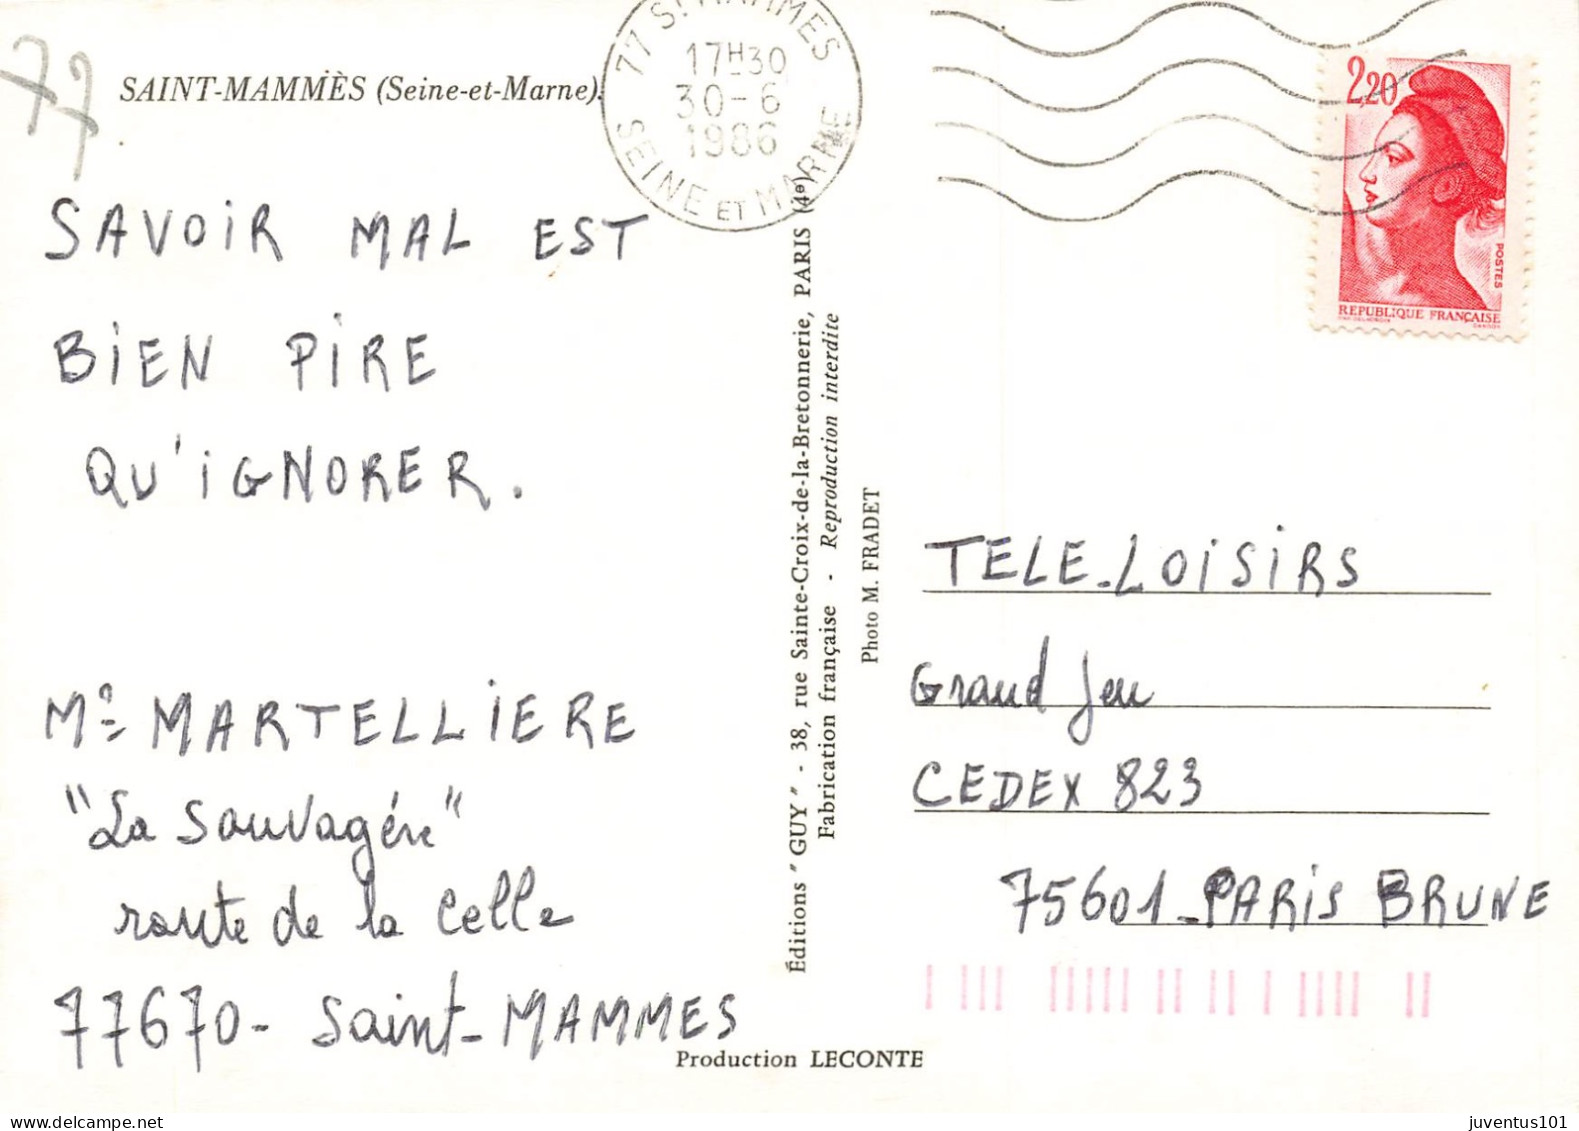 77
SAINT-MAMMÈS (Seine-et-Marne).
77 ST MAMMES
17H30
30-6
1986
SEINE ET MARNE
2,20
POSTES
REPUBLIQUE FRANÇAISE
SAVOIR MAL EST
BIEN PIRE
QU'IGNORER.
Me MARTELLIERE
"La Sauvagére"
route de la Celle
77670 - Saint-MAMMES
Éditions "GUY" - 38, rue Sainte-Croix-de-la-Bretonnerie, PARIS (4e)
Fabrication française - Reproduction interdite
Photo M. FRADET
TELE-LOISIRS
Grand Jeu
CEDEX 823
75601 - PARIS BRUNE
Production LECONTE
juventus101